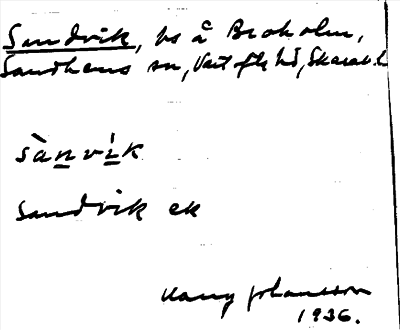 Sandvik, hs å Broholm,
Sandhems sn, Vartofta hd, Skarab. l
sàn̲vi̲̍k
Sandvik ek
Harry Johansson
1936.